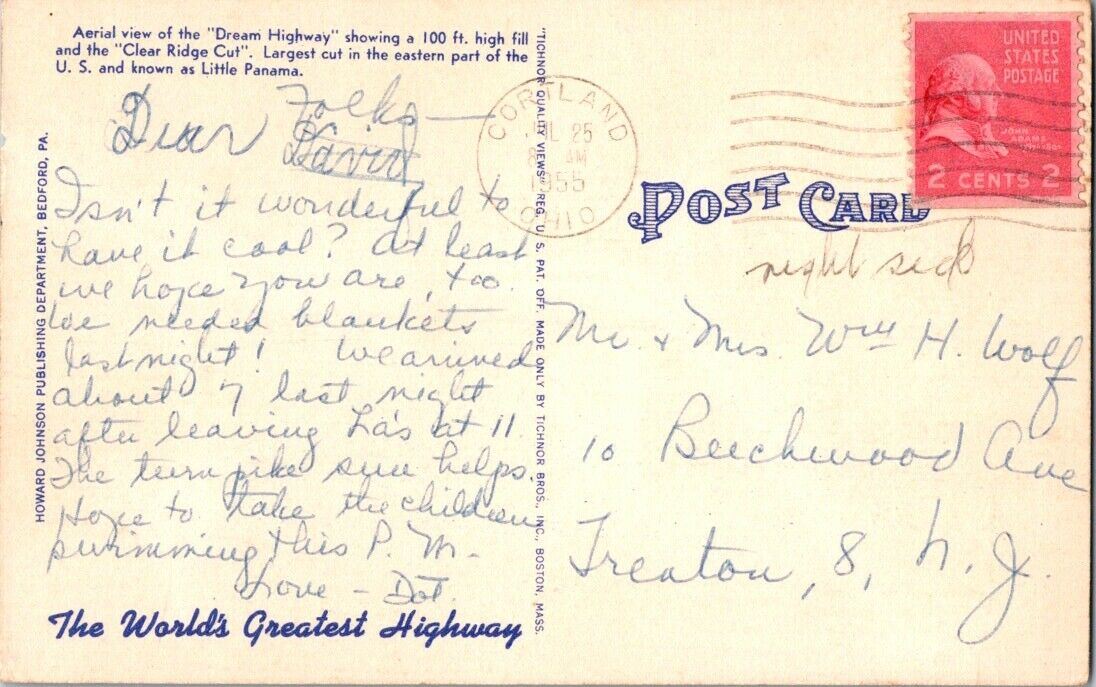 Aerial view of the "Dream Highway" showing a 100 ft. high fill
and the "Clear Ridge Cut". Largest cut in the eastern part of the
U. S. and known as Little Panama.
Dear Folks —
David
Isn't it wonderful to
have it cool? At least
we hope you are, too.
We needed blankets
last night! We arrived
about 7 last night
after leaving La's at 11
The turnpike sure helps.
Hope to take the children
swimming this P. M. -
Love - Dot.
The World's Greatest Highway
HOWARD JOHNSON PUBLISHING DEPARTMENT, BEDFORD, PA.
"TICHNOR QUALITY VIEWS" REG. U. S. PAT. OFF. MADE ONLY BY TICHNOR BROS., INC., BOSTON, MASS.
CORTLAND
JUL 25
8 AM
1955
OHIO
UNITED
STATES
POSTAGE
JOHN
ADAMS
2 CENTS 2
POST CARD
right side
Mr. & Mrs. Wm H. Wolf
10 Beechwood Ave
Trenton, 8, N. J.